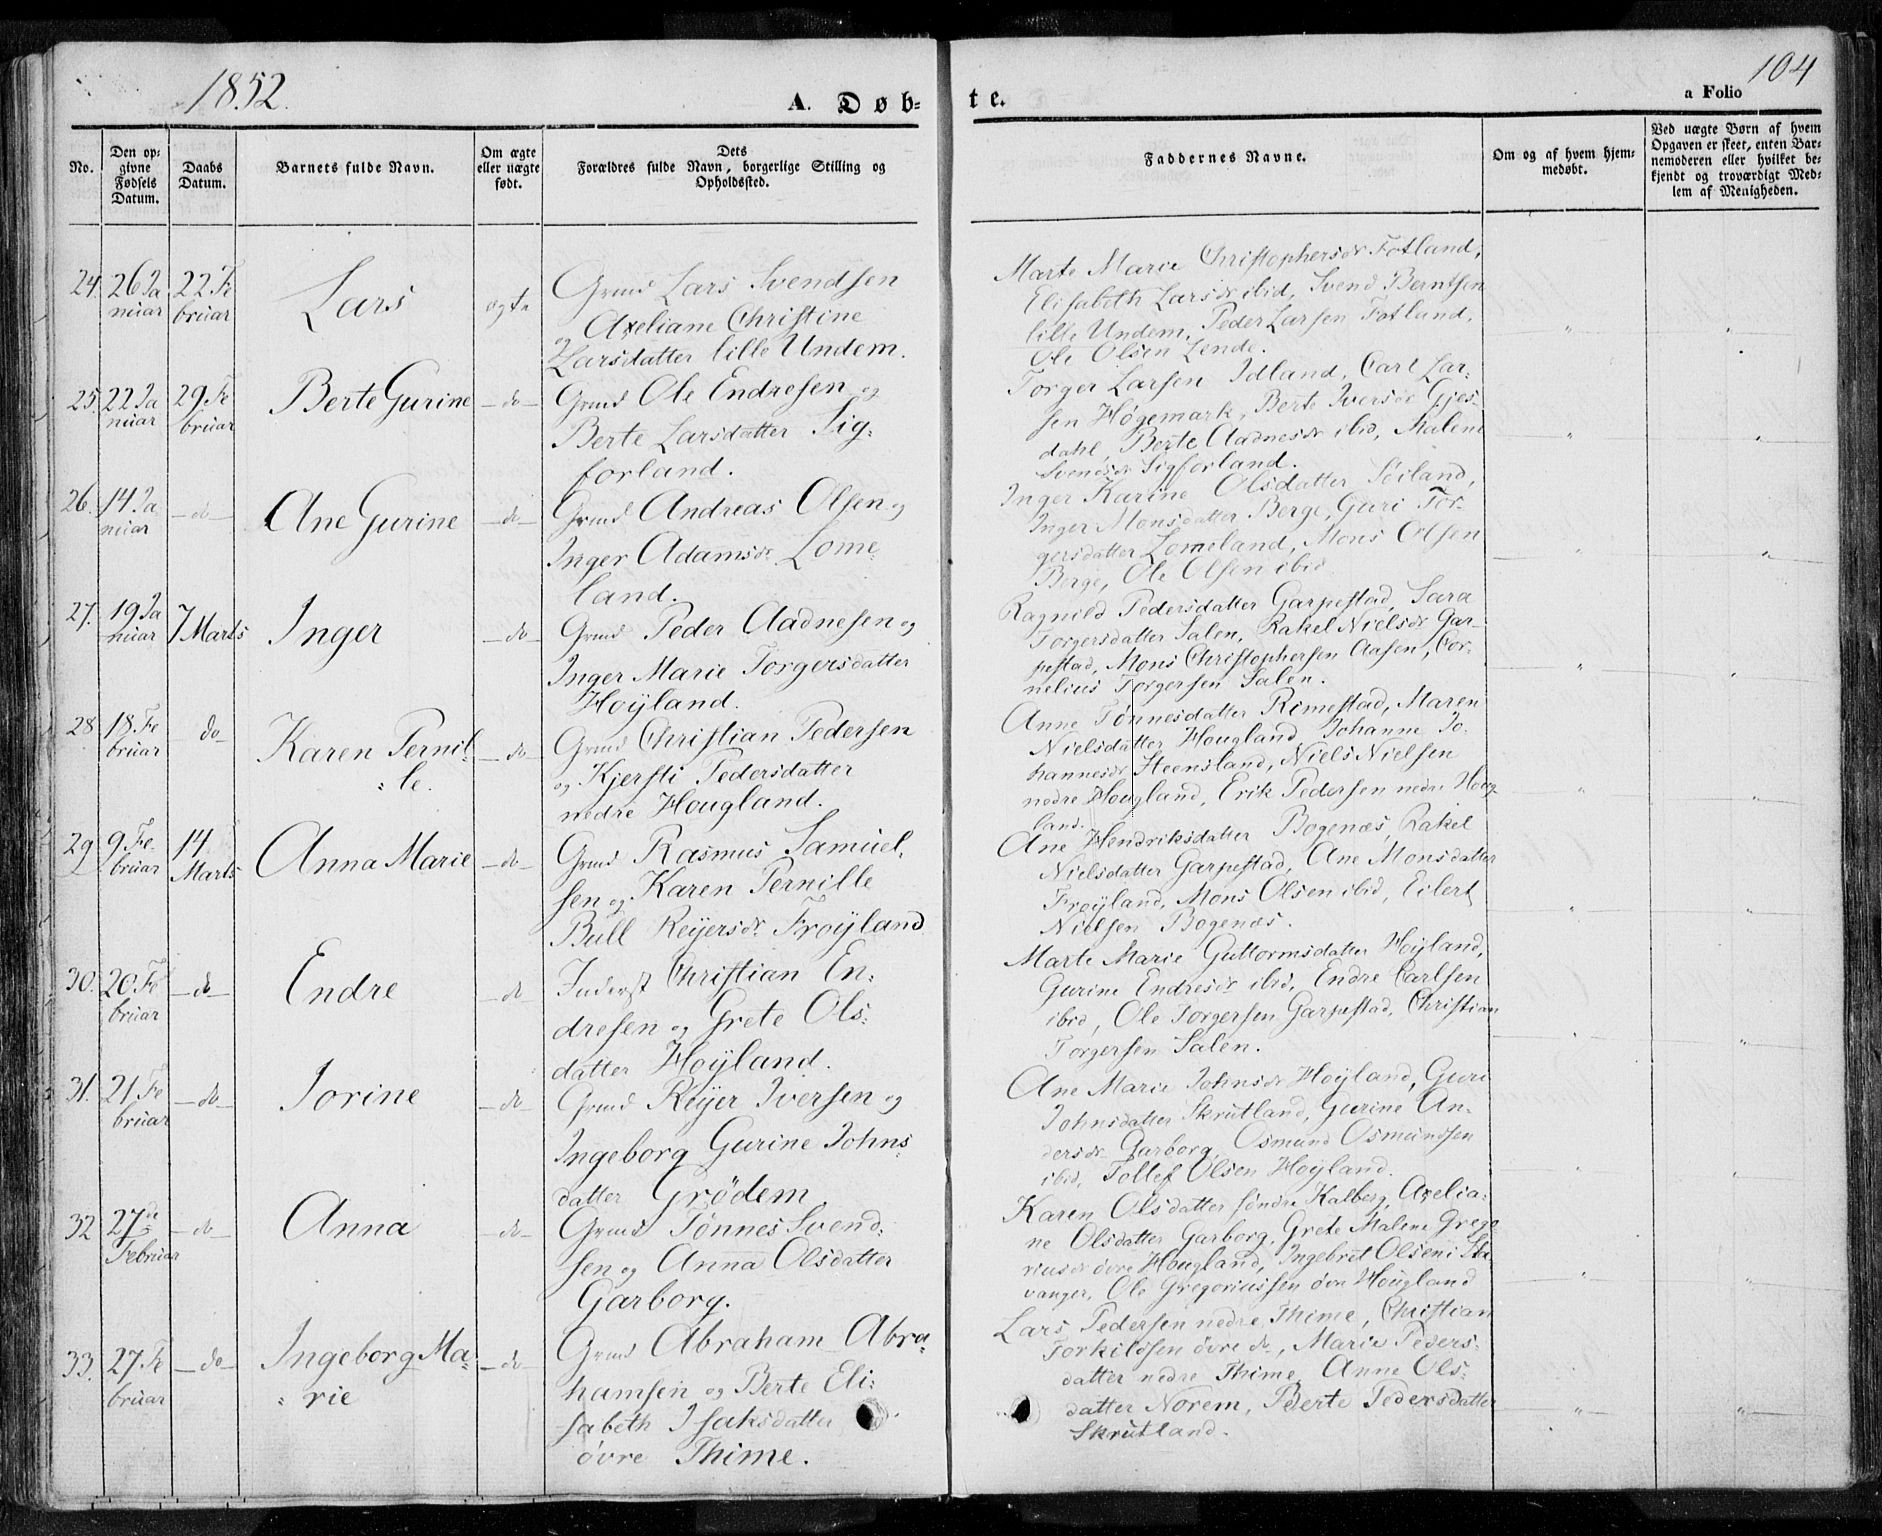 1852.
A. Døb-
te.
104
a Folio
No.
Den op-
givne
Fødsels
Datum.
Daabs
Datum.
Barnets fulde Navn.
Om ægte
eller uægte
født.
Dets
Forældres fulde Navn, borgerlige Stilling og
Opholdssted.
Faddernes Navne.
Om og af hvem hjem-
medøbt.
Ved uægte Børn af hvem
Opgaven er skeet, enten Bar-
nemoderen eller hvilket be-
kjendt og troværdigt Med-
lem af Menigheden.
24. 26 Ja
nuar
22 Fe
bruar
Lars
ægte
Grmd Lars Svendsen
og Axeliane Christine
Larsdatter lille Undem.
Marte Marie Christophersdr Fotland,
Elisabeth Larsdr ibid, Svend Berntsen
lille Undem, Peder Larsen Fotland,
Ole Olsen Lende.
25. 22 Ja
nuar
29 Fe
bruar
Berte Gurine
-do-
Grmd Ole Endresen og
Berte Larsdatter Sig-
forland.
Torger Larsen Idland, Carl Lar-
sen Høgemark, Berte Iversdr Gjes-
dahl, Berte Aadnesdr ibid, Malene
Svendsdr Sigforland.
26. 14 Ja
nuar
-do-
Ane Gurine
-do-
Grmd Andreas Olsen og
Inger Adamsdr Lome-
land.
Inger Karine Olsdatter Søiland,
Inger Monsdatter Berge, Guri Tor-
gersdatter Lomeland, Mons Olsen
Berge, Ole Olsen ibid
27. 19 Ja
nuar
7 Marts
Inger
-do-
Grmd Peder Aadnesen og
Inger Marie Torgersdatter
Høyland.
Ragnild Pedersdatter Garpestad, Sara
Torgersdatter Salen, Rakel Nielsdr Gar-
pestad, Mons Christophersen Aasen, Cor-
nelius Torgersen Salen.
28 18 Fe
bruar
do-
Karen Pernil-
le.
-do-
Grmd Christian Pedersen
og Kjersti Pedersdatter
nedre Hougland.
Anne Tønnesdatter Rimestad, Maren
Nielsdatter Hougland Johanne Jo-
hannesdr Heensland, Niels Nielsen
nedre Hougland, Erik Pedersen nedre Houg
land.
29 9 Fe-
bruar
14
Marts
Anna Marie
-do-
Grmd Rasmus Samuel-
sen og Karen Pernille
Bull Reyersdr Frøyland
Ane Hendriksdatter Bogenæs, Rakel
Nielsdatter Garpestad, Ane Monsdatter
Frøyland, Mons Olsen ibid, Eilert
Nielsen Bogenæs.
30. 20 Fe
bruar
-do-
Endre
-do
Inderst Christian En-
dresen og Grete Ols-
datter Høyland.
Marte Marie Guttormsdatter Høyland,
Gurine Endresdr ibid, Endre Carlsen
ibid, Ole Torgersen Garpestad, Christian
Torgersen Salen.
31. 21 Fe
bruar
-do-
Jorine
-do-
Grmd Reyer Iversen og
Ingeborg Gurine Johns-
datter Grødem.
Ane Marie Johnsdr Høyland, Guri
Johnsdatter Skrutland, Gurine An-
dersdr Garborg, Osmund Osmundsen
ibid, Tollef Olsen Høyland.
32 27de
Februar
-do-
Anna
-do-
Grmd Tønnes Svend-
sen og Anna Olsdatter
Garborg.
Karen Olsdatter søndre Kalberg, Axelia-
ne Olsdatter Garborg, Grete Malene Grego
riusdr övre Hougland, Ingebret Olsen i Sta
vanger, Ole Gregoriussen övre Hougland
33. 27 Fe
bruar
-do-
Ingeborg Ma-
rie
-do-
Grmd Abraham Abra-
hamsen og Berte Eli-
sabeth Isaksdatter
övre Thime.
Lars Pedersen nedre Thime, Christian
Torkildsen övre do, Marie Peders-
datter nedre Thime, Anne Ols-
datter Norem, Berte Pedersdatter
Skrutland.